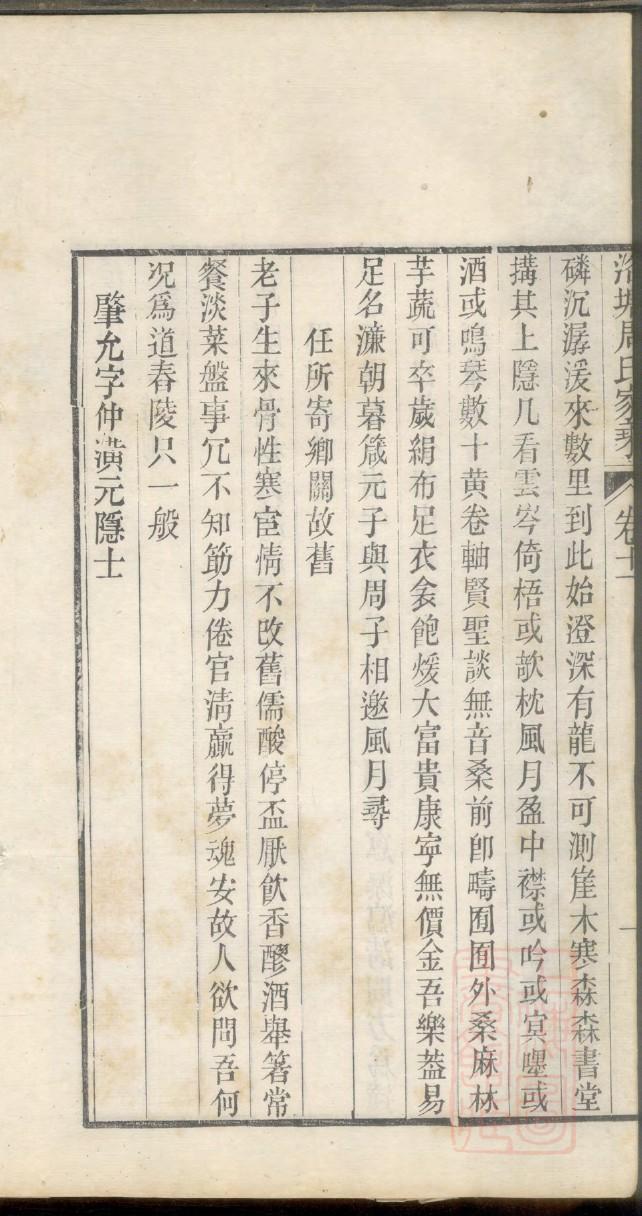 周氏家 卷十一
磷沉潺湲來數里到此始澄深有龍不可測崖木寒森森書堂
搆其上隱几看雲岑倚梧或欹枕風月盈中襟或吟或㝠嘿或
酒或鳴琴數十黃卷軸賢聖談無音桑前卽疇囿囿外桑麻林
芋蔬可卒歲絹布足衣衾飽煖大富貴康寧無價金吾樂葢易
足名濂朝暮箴元子與周子相邀風月尋
任所寄鄉關故舊
老子生來骨性寒宦情不改舊儒酸停盃厭飮香醪酒舉箸常
餐淡菜盤事冗不知筋力倦官淸羸得夢魂安故人欲問吾何
況爲道舂陵只一般
肇允字仲潢元隱士